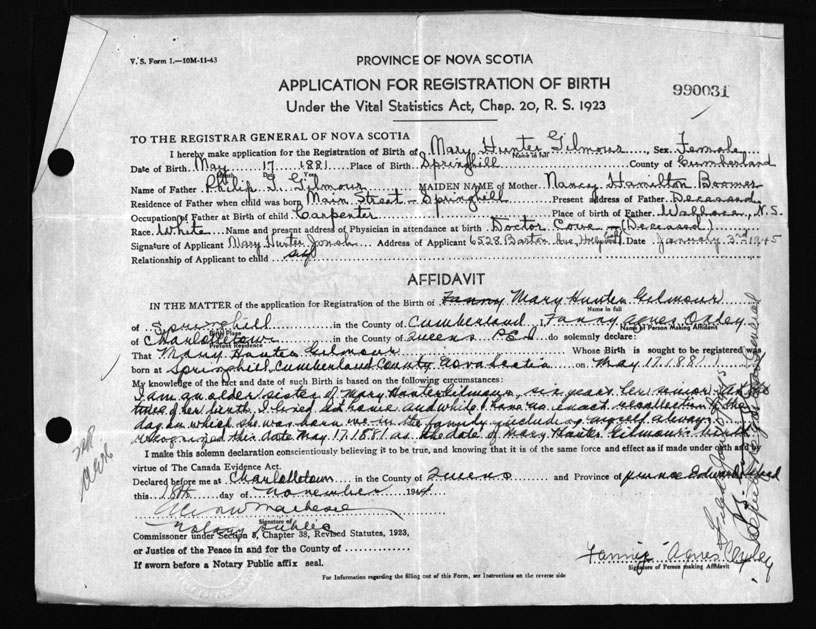 V. S. Form 1.—10M-11-43
PROVINCE OF NOVA SCOTIA
APPLICATION FOR REGISTRATION OF BIRTH
990031
Under the Vital Statistics Act, Chap. 20, R. S. 1923
TO THE REGISTRAR GENERAL OF NOVA SCOTIA
I hereby make application for the Registration of Birth of Mary Hunter Gilmour, Sex Female
Name in full
Date of Birth May 17 1881 Place of Birth Springhill County of Cumberland
Name of Father Philip G. Gilmour MAIDEN NAME of Mother Nancy Hamilton Boomer
Residence of Father when child was born Main Street – Springhill Present address of Father Deceased
Occupation of Father at Birth of child Carpenter Place of birth of Father Wallace, N.S.
Race White Name and present address of Physician in attendance at birth Doctor Cove – (Deceased)
Signature of Applicant Mary Hunter Jonah Address of Applicant 6528 Barton Ave, Date January 3rd 1945
Relationship of Applicant to child self
AFFIDAVIT
IN THE MATTER of the application for Registration of the Birth of Fanny Mary Hunter Gilmour
Name in full
of Springhill in the County of Cumberland I, Fanny Agnes Oxley
Birth Place
Name of Person Making Affidavit
of Charlottetown in the County of Queens P.E.I. do solemnly declare:
Present Residence
That Mary Hunter Gilmour Whose Birth is sought to be registered was
born at Springhill Cumberland County Nova Scotia on May 17. 1881
My knowledge of the fact and date of such Birth is based on the following circumstances:
I am an older sister of Mary Hunter Gilmour, six years her senior. At the
time of her birth, I lived at home and while I have no exact recollection of the
day on which she was born we in the family including myself always
recognized this date May 17. 1881 as the date of Mary Hunter Gilmour's birth
I make this solemn declaration conscientiously believing it to be true, and knowing that it is of the same force and effect as if made under oath and by
virtue of The Canada Evidence Act.
Declared before me at Charlottetown in the County of Queens and Province of Prince Edward Island
this 16th day of November 1944
Signature of
Notary Public
Commissioner under Section 8, Chapter 38, Revised Statutes, 1923,
or Justice of the Peace in and for the County of
If sworn before a Notary Public affix seal.
Fanny Agnes Oxley
Signature of Person making Affidavit
For Information regarding the filling out of this Form, see Instructions on the reverse side
Deputy Registrar General